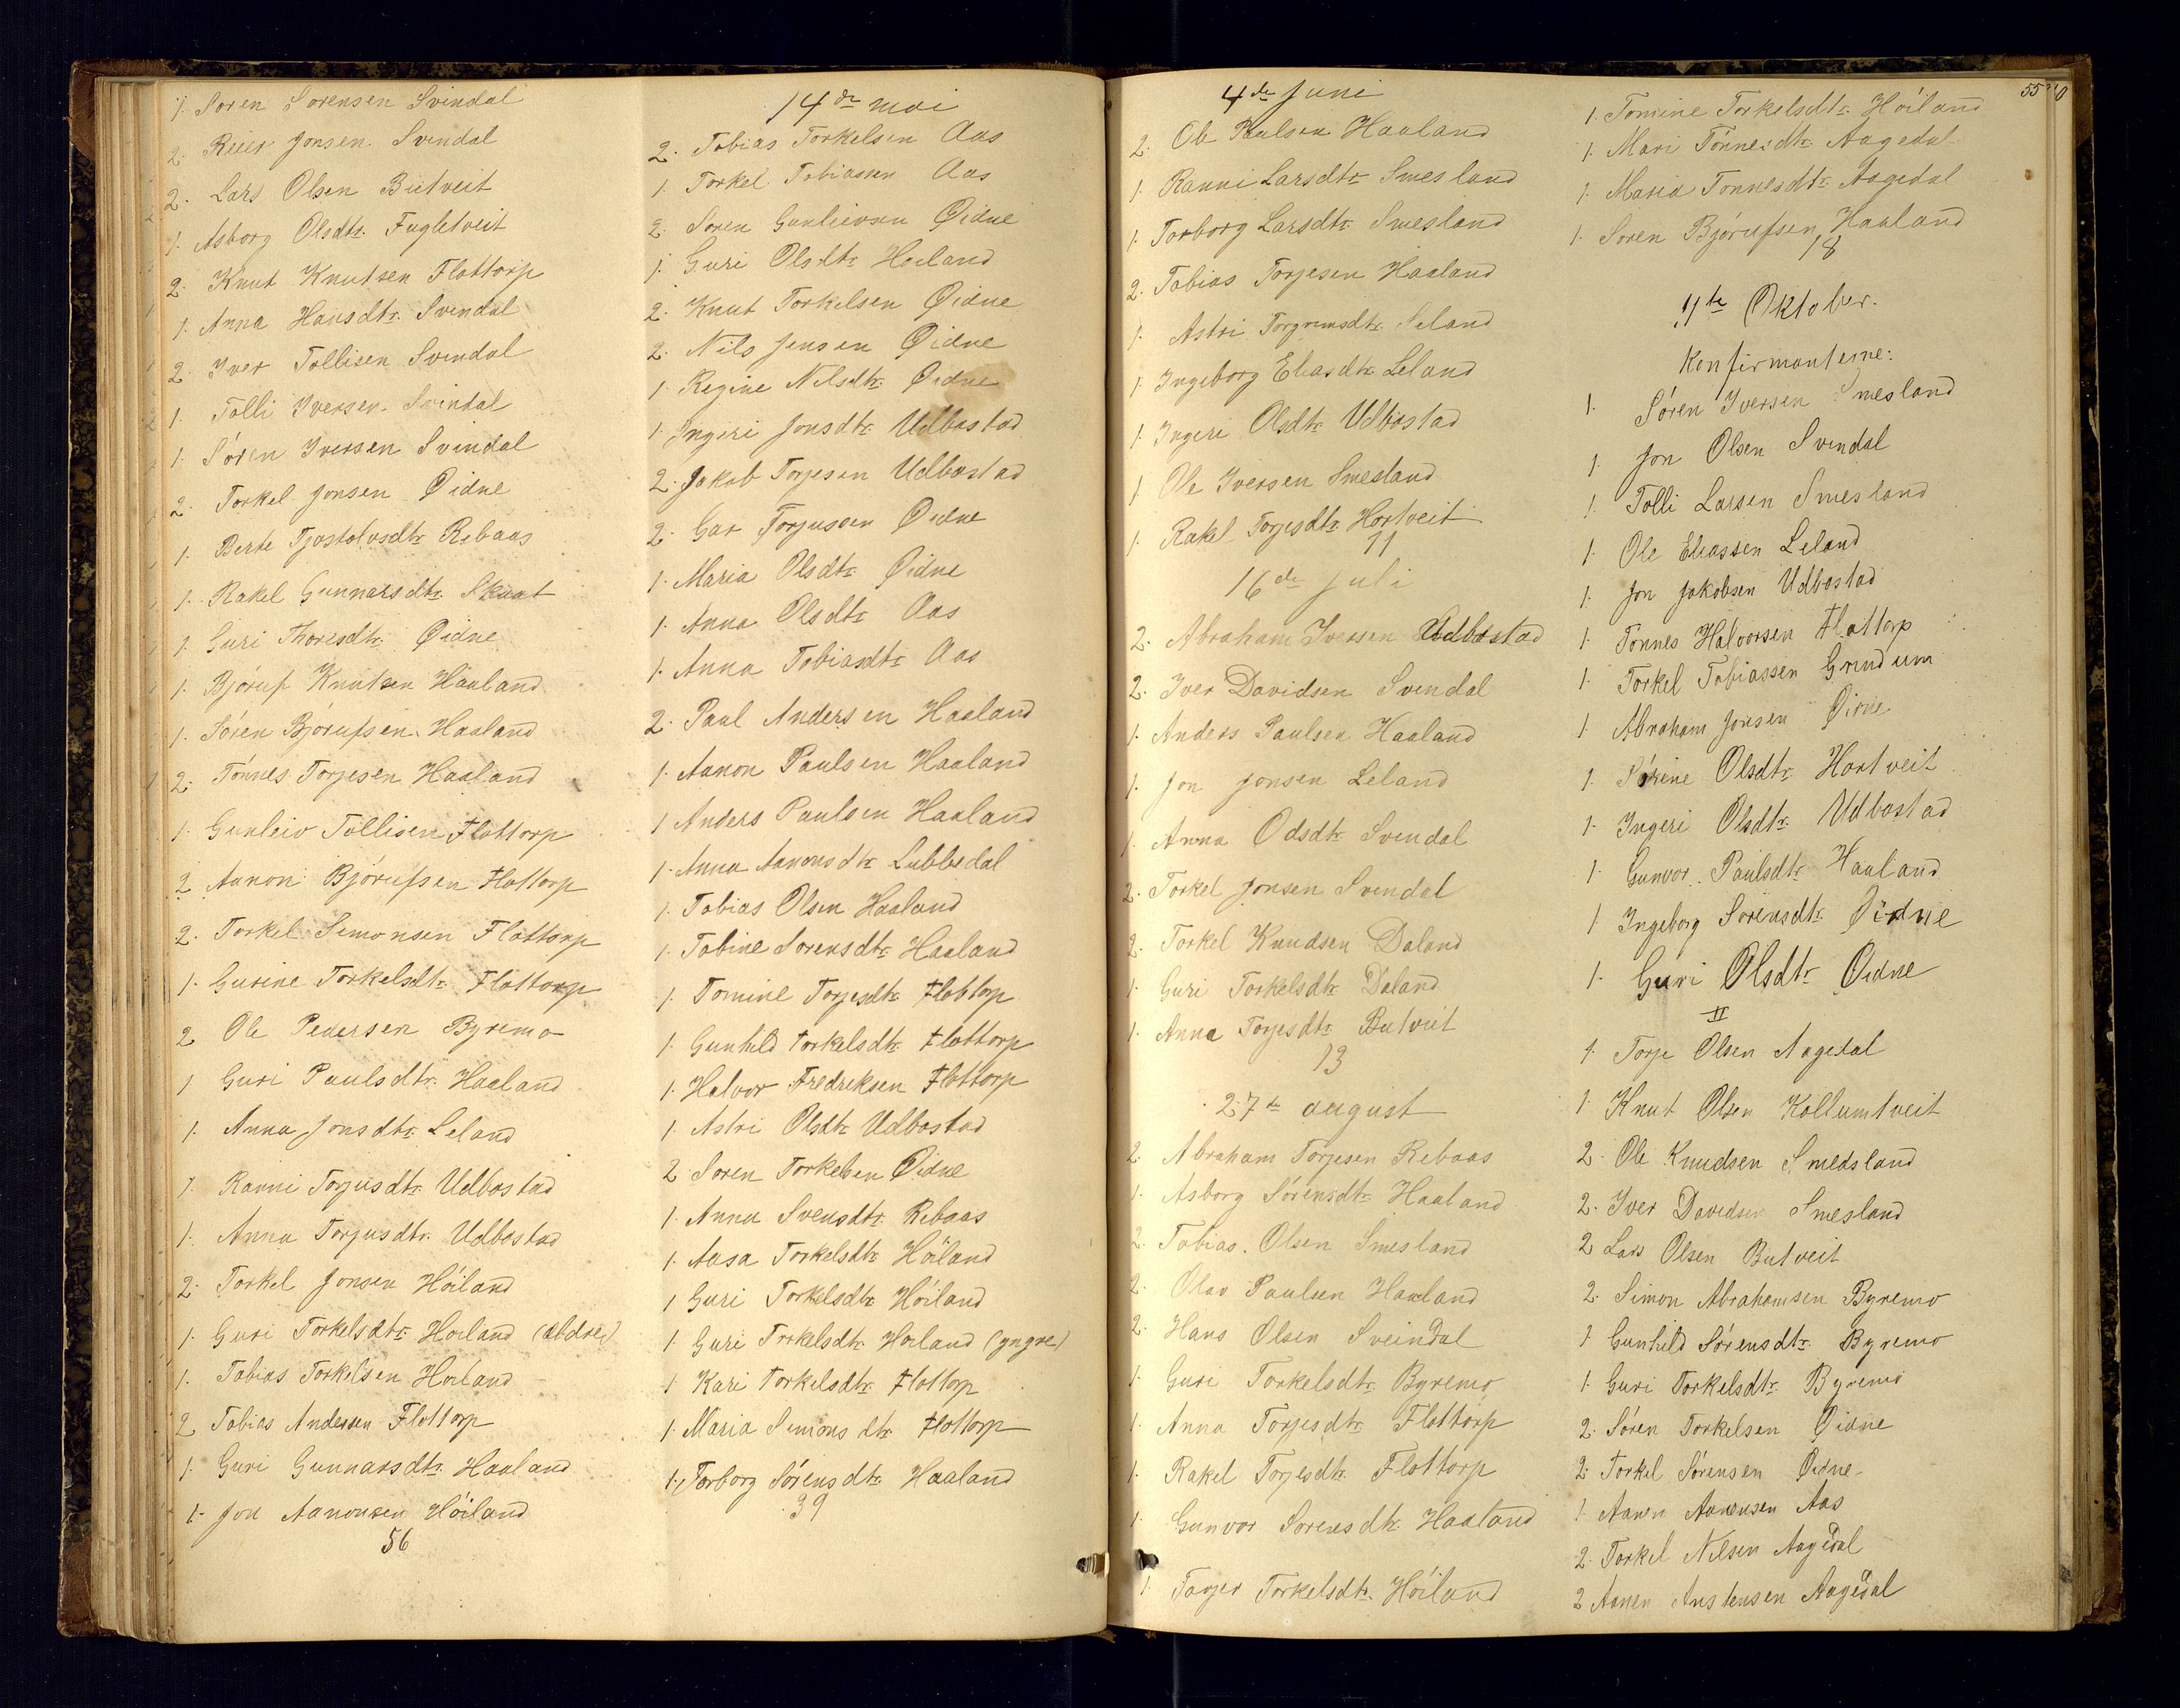 1. Soren Sorensen Svindal
2. Reier Jonsen Svindal
2. Lars Olsen Butveit
1. Asborg Olsdtr. Fugletveit
2. Knut Knutsen Flottorp
1. Anna Hansdtr. Svindal
2. Iver Tollisen Svindal
1. Tolli Iversen Svindal
1. Sören Iversen Svindal
2. Torkel Jonsen Øidne
1. Berte Tjostolvsdtr. Rebaas
1. Rakel Gunnarsdtr. Skuat
1. Guri Thoresdtr. Øidne
1. Björuf Knutsen Haaland
1. Sören Björufsen Haaland
2. Tönnes Torjesen Haaland
1. Gunleiv Tollisen Flottorp
2 Aanon Björufsen Flottorp
2. Torkel Simonsen Flottorp
1. Gurine Torkelsdtr. Flottorp
2 Ole Pedersen Byremo
1 Guri Paulsdtr. Haaland
1. Anna Jonsdtr. Leland
1. Ranni Torjusdtr. Udbostad
1. Anna Torjusdtr. Udbostad
2. Torkel Jonsen Höiland
1. Guri Torkelsdtr. Hoiland (ældre)
1. Tobias Torkelsen Hoiland
2 Tobias Andersen Flottorp
1. Guri Gunnarsdtr. Haaland
1. Jon Aanonsen Höiland
56
14de mai
2. Tobias Torkelsen Aas
1. Torkel Tobiassen Aas
2. Soren Gunlievsen Øidne
1. Guri Olsdtr. Hoiland
2. Knut Torkelsen Øidne
2. Nils Jensen Øidne
1. Regine Nilsdtr. Øidne
1. Ingiri Jonsdtr. Udbostad
2. Jakob Torjesen Udbostad
2. Gar Torjussen Øidne
1. Maria Olsdtr. Øidne
1. Anna Olsdtr. Aas
1. Anna Tobiasdtr. Aas
2. Paul Andersen Haaland
1. Aanon Paulsen Haaland
1 Anders Paulsen Haaland
1. Anna Aanonsdtr. Lubbedal
1. Tobias Olsen Haaland
1. Tobine Sorensdtr. Haaland
1. Tomine Torjesdtr. Flottorp
1. Gunhild Torkelsdtr. Flottorp
1. Halvor Fredriksen Flottorp
1. Astri Olsdtr. Udbostad
2 Soren Torkelsen Øidne
1. Anna Svensdtr. Rebaas
1. Aasa Torkelsdtr. Höiland
1 Guri Torkelsdtr. Höiland
1 Guri Torkelsdtr. Hoiland (yngre)
1 Kari Torkelsdtr. Flottorp
1. Maria Simonsdtr. Flottorp
1. Torborg Sörensdtr. Haaland
39
4de Juni
2. Ole Paulsen Haaland
1. Ranni Larsdtr. Smesland
1. Torborg Larsdtr. Smesland
2. Tobias Torjesen Haaland
1. Astri Torgrimsdtr. Leland
1. Ingeborg Eliasdtr. Leland
1. Ingeri Olsdtr. Udbostad
1 Ole Iversen Smesland
1. Rakel Torjesdtr. Hortveit
11
16de Juli
2. Abraham Iversen Udbostad
2. Iver Davidsen Svendal
1. Anders Paulsen Haaland
1. Jon Jonsen Leland
1. Anna Odsdtr. Svendal
2. Torkel Jonsen Svendal
2. Torkel Knudsen Daland
1. Guri Torkelsdtr. Daland
1. Anna Torjesdtr. Butveit
13
27de august
2. Abraham Torjesen Rebaas
1. Asborg Sörensdtr. Haaland
2. Tobias Olsen Smesland
2. Olav Paulsen Haaland
2. Hans Olsen Sveindal
1. Guri Torkelsdtr. Byremo
1. Anna Torjesdtr. Flottorp
1. Rakel Torjesdtr. Flottorp
1. Gunvor Sorensdtr. Haaland
1. Torjer Torkelsdtr. Höiland
55
1. Tomine Torkelsdtr. Höiland
1. Mari Tönnesdtr. Aagedal
1. Maria Tönnesdtr. Aagedal
1. Soren Björufsen Haaland
18
11te Oktober.
Konfirmanterne:
1. Sören Iversen Smesland
1. Jon Olsen Svendal
1. Tolli Larsen Smesland
1. Ole Eliassen Leland
1. Jon Jakobsen Udbostad
1. Tonnes Halvorsen Flottorp
1. Torkel Tobiassen Grindum
1 Abraham Jonsen Øidne
1. Sörine Olsdtr. Hortveit
1. Ingeri Olsdtr. Udbostad
1. Gunvor Paulsdtr. Haaland
1 Ingeborg Sorensdtr. Øidne
1. Guri Olsdtr. Øidne
II
1 Torje Olsen Aagedal
1 Knut Olsen Kollumtveit
2. Ole Knudsen Smedsland
2. Iver Davidsen Smesland
2 Lars Olsen Butveit
2. Simon Abrahamsen Byremo
1 Gunhild Sörensdtr. Byremo
1. Guri Torkelsdtr. Byremo
2. Sören Torkelsen Øidne
2. Torkel Sörensen Øidne
1. Aanen Aanensen Aas
2. Torkel Nilsen Aagedal
2 Aanen Anstensen Aagedal